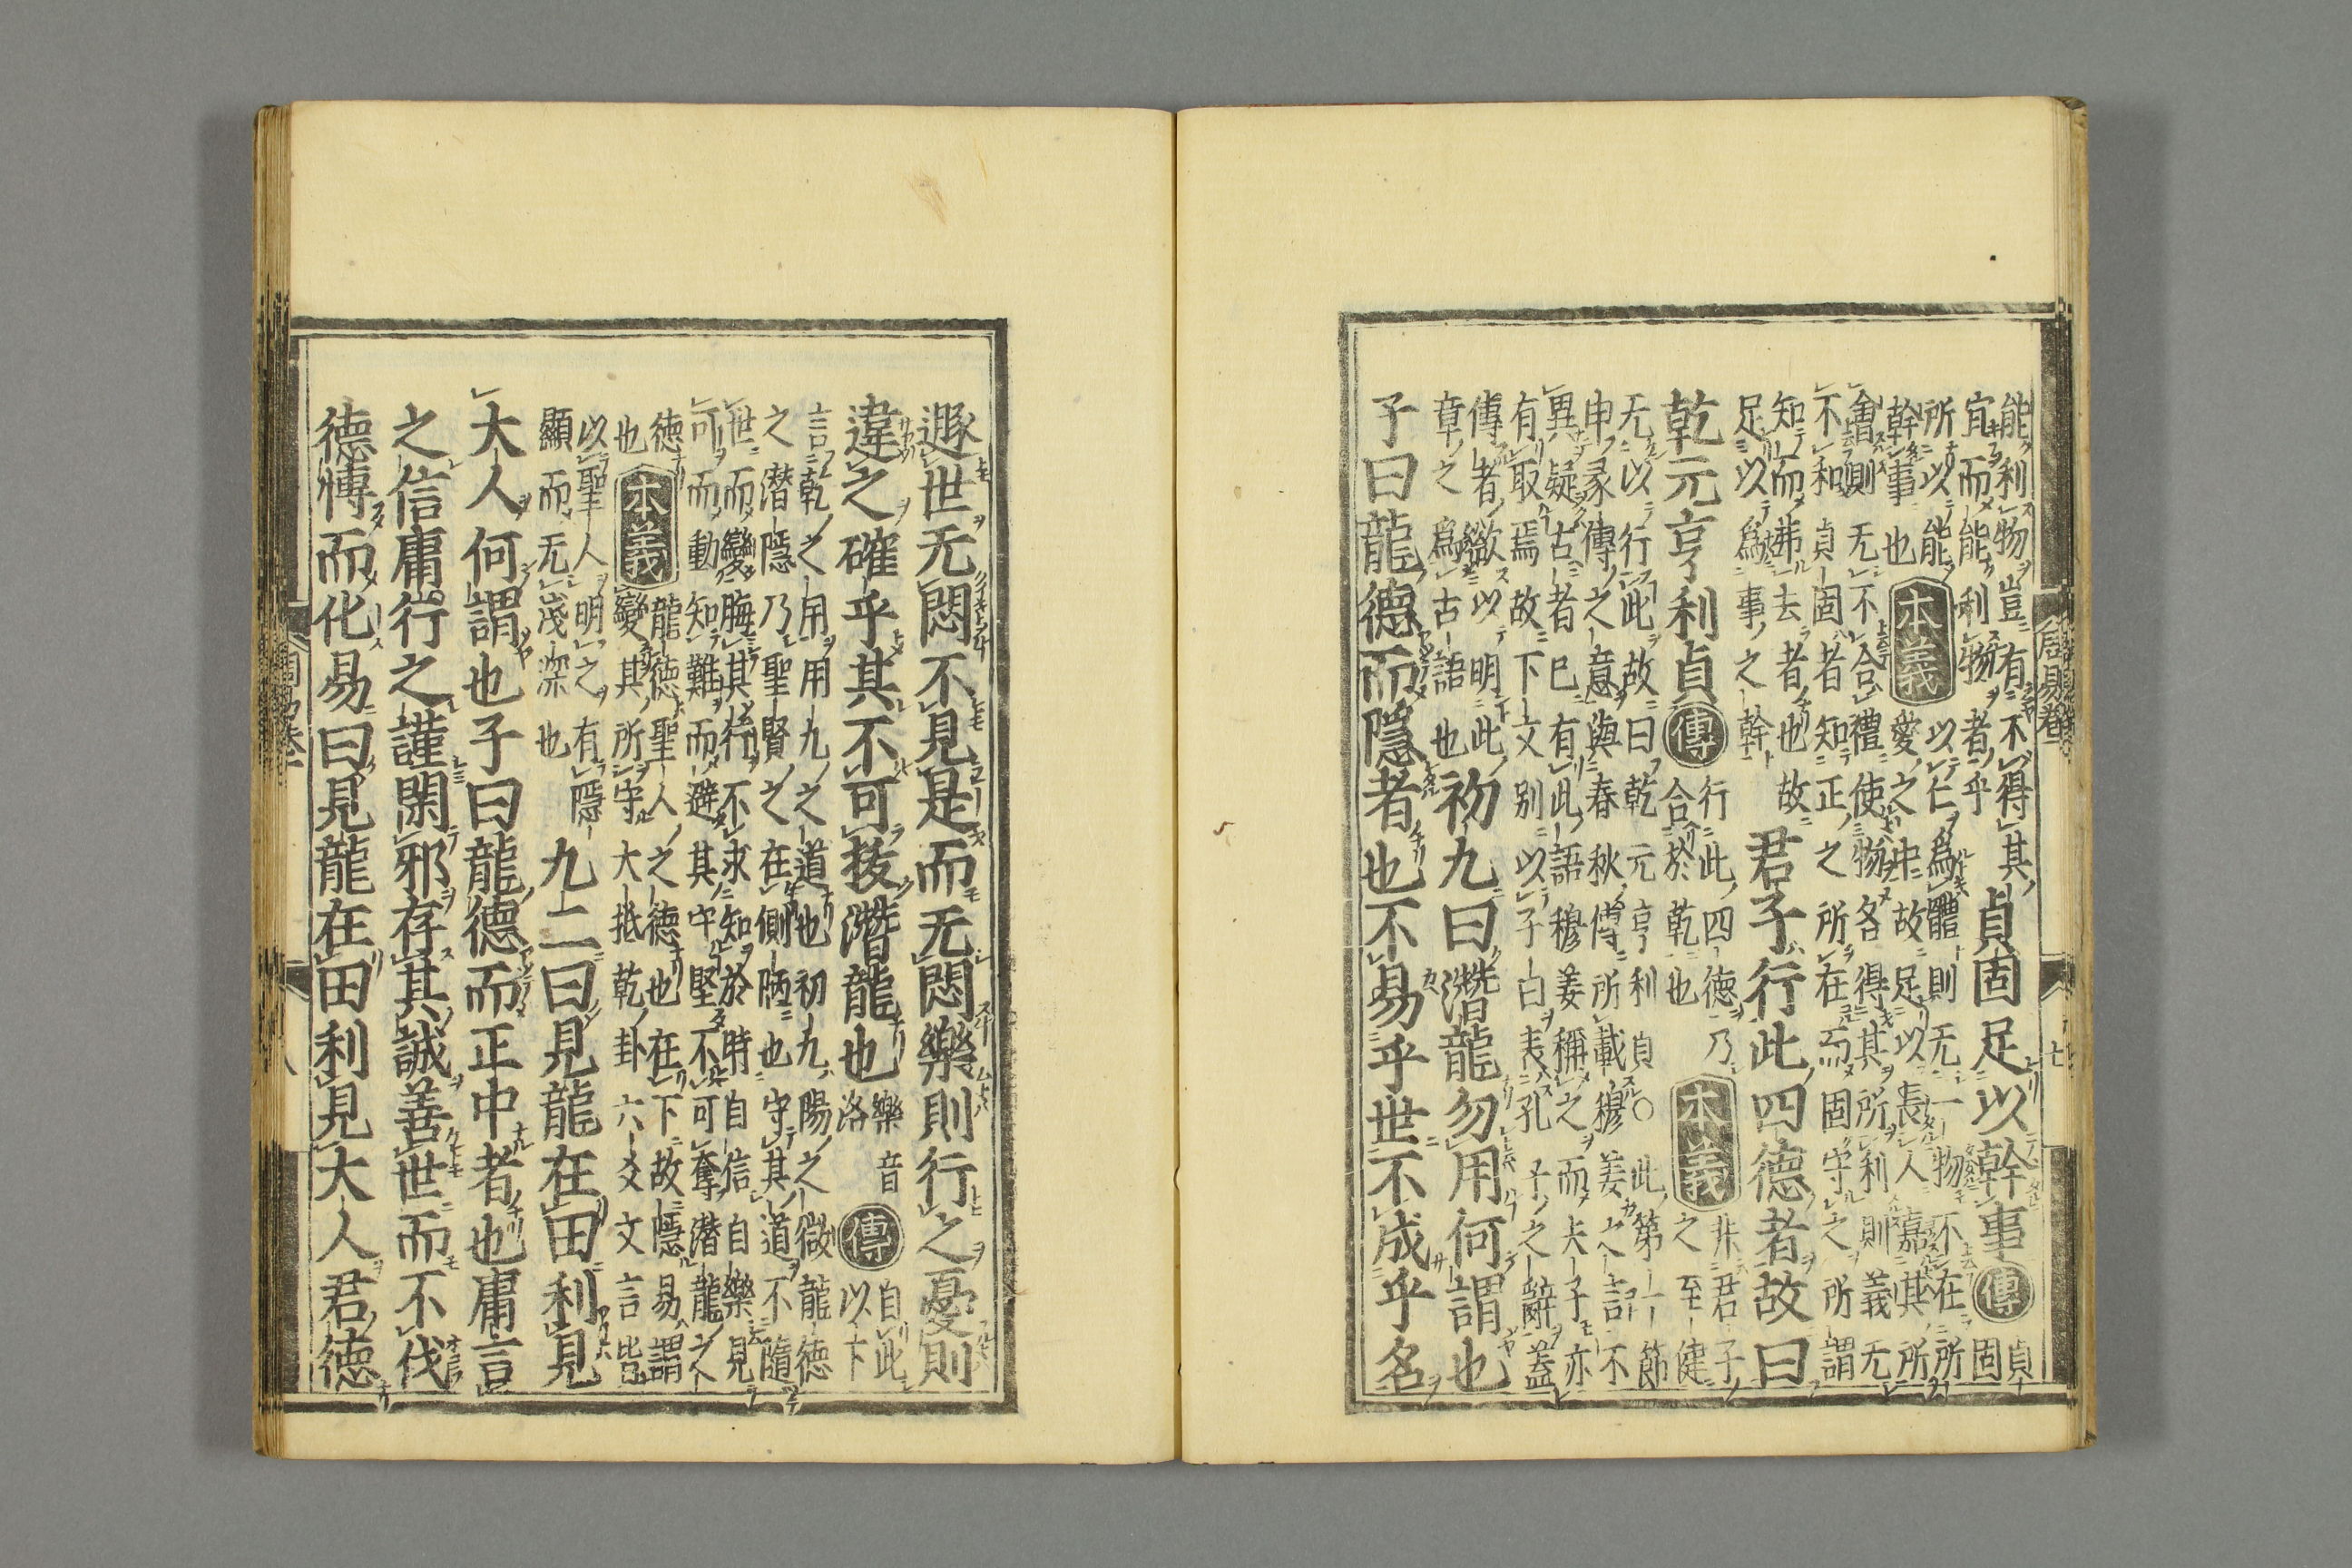 周易卷一 七
能利物豈有不得其
宜而能利物者乎
貞固足以幹事 傳 貞
固
所以能
幹事也
本義
以仁爲體則无一物不在所
愛之中故足以長人嘉其所
會則无不合禮使物各得其所利則義无
不和貞固者知正之所在而固守之所謂
知而弗去者也故
足以爲事之幹
君子行此四德者故曰
乾元亨利貞 傳
行此四德乃
合於乾也
本義
非君子
之至健
无以行此故曰乾元亨利貞○此第一節
申彖傳之意與春秋傳所載穆姜之言不
異疑古者已有此語穆姜稱之而夫子亦
有取焉故下文別以子曰表孔子之辭蓋
傳者欲以明此
章之爲古語也
初九曰潛龍勿用何謂也
子曰龍德而隱者也不易乎世不成乎名
遯世无悶不見是而无悶樂則行之憂則
違之確乎其不可拔潛龍也
樂音
洛
傳
自此
以下
言乾之用用九之道也初九陽之微龍德
之潛隱乃聖賢之在側陋也守其道不隨
世而變晦其行不求知於時自信自樂見
可而動知難而避其守堅不可奪潛龍之
德
也
本義
龍德聖人之德也在下故隱易謂
變其所守大抵乾卦六爻文言皆
以聖人明之有隱
顯而无淺深也
九二曰見龍在田利見
大人何謂也子曰龍德而正中者也庸言
之信庸行之謹閑邪存其誠善世而不伐
德博而化易曰見龍在田利見大人君德
周易卷一 八